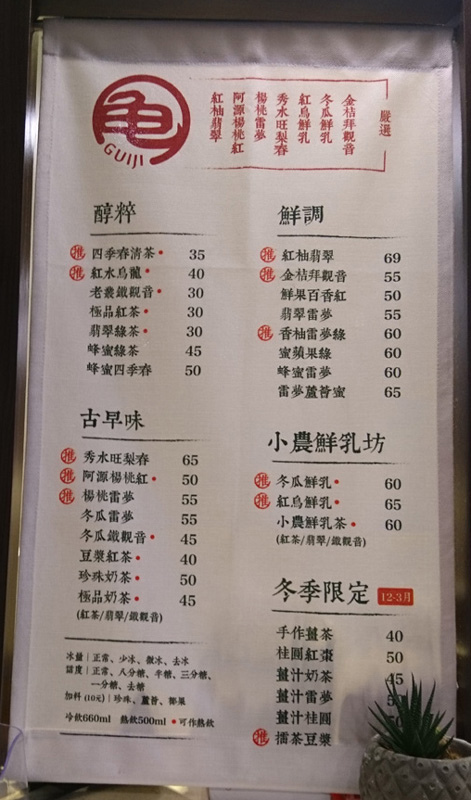 龜
GUIJI
嚴選
金桔拜觀音
冬瓜鮮乳
紅烏鮮乳
秀水旺梨春
楊桃雷夢
阿源楊桃紅
紅柚翡翠
醇粹
推 四季春清茶• 35
推 紅水烏龍• 40
老欉鐵觀音• 30
極品紅茶• 30
翡翠綠茶• 30
蜂蜜綠茶 45
蜂蜜四季春 50
古早味
推 秀水旺梨春 65
推 阿源楊桃紅• 50
推 楊桃雷夢 55
冬瓜雷夢 55
冬瓜鐵觀音• 45
豆漿紅茶• 40
珍珠奶茶• 50
極品奶茶• 45
(紅茶/翡翠/鐵觀音)
冰量|正常、少冰、微冰、去冰
甜度|正常、八分糖、半糖、三分糖、
一分糖、去糖
加料 (10元)|珍珠、蘆薈、椰果
冷飲660ml 熱飲500ml •可作熱飲
鮮調
推 紅柚翡翠 69
推 金桔拜觀音 55
鮮果百香紅 50
翡翠雷夢 55
推 香柚雷夢綠 60
蜜蘋果綠 60
蜂蜜雷夢 60
雷夢蘆薈蜜 65
小農鮮乳坊
推 冬瓜鮮乳• 60
推 紅烏鮮乳• 65
小農鮮乳茶• 60
(紅茶/翡翠/鐵觀音)
冬季限定 12-3月
手作薑茶 40
桂圓紅棗 50
薑汁奶茶 45
薑汁雷夢
薑汁桂圓
推 擂茶豆漿